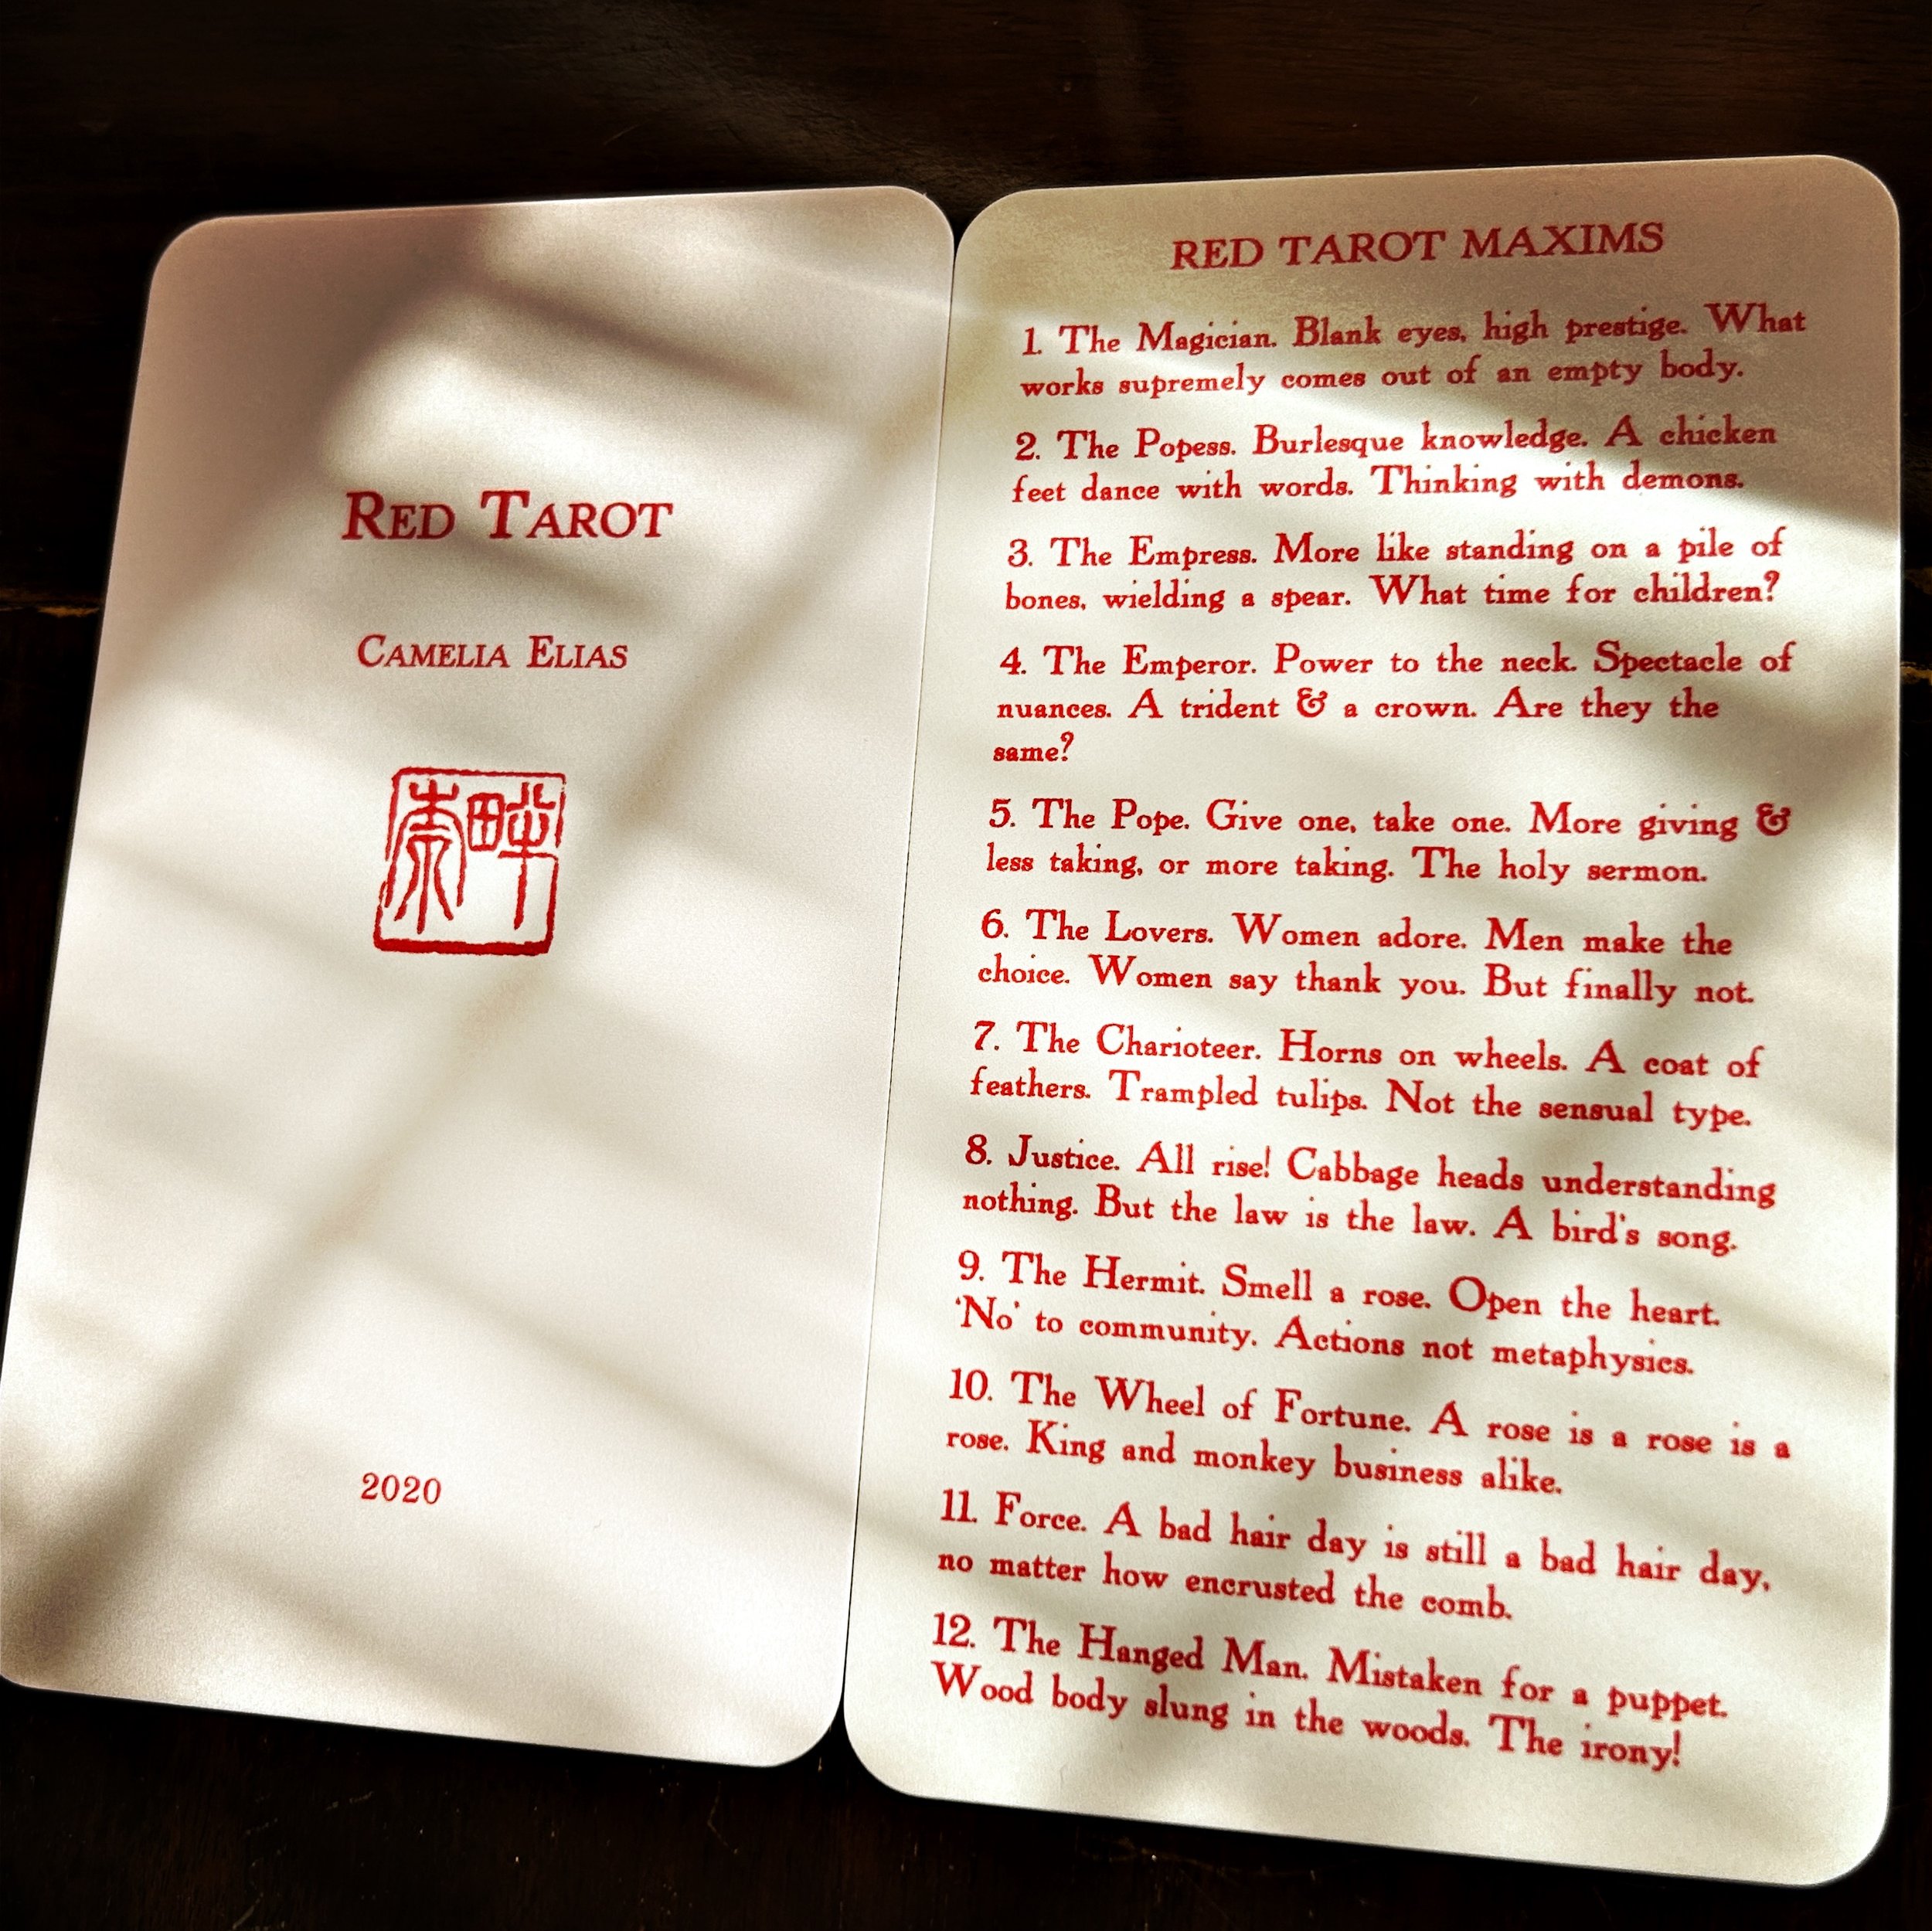 RED TAROT
CAMELIA ELIAS
2020
RED TAROT MAXIMS
1. The Magician. Blank eyes, high prestige. What
works supremely comes out of an empty body.
2. The Popess. Burlesque knowledge. A chicken
feet dance with words. Thinking with demons.
3. The Empress. More like standing on a pile of
bones, wielding a spear. What time for children?
4. The Emperor. Power to the neck. Spectacle of
nuances. A trident & a crown. Are they the
same?
5. The Pope. Give one, take one. More giving &
less taking, or more taking. The holy sermon.
6. The Lovers. Women adore. Men make the
choice. Women say thank you. But finally not.
7. The Charioteer. Horns on wheels. A coat of
feathers. Trampled tulips. Not the sensual type.
8. Justice. All rise! Cabbage heads understanding
nothing. But the law is the law. A bird's song.
9. The Hermit. Smell a rose. Open the heart.
'No' to community. Actions not metaphysics.
10. The Wheel of Fortune. A rose is a rose is a
rose. King and monkey business alike.
11. Force. A bad hair day is still a bad hair day,
no matter how encrusted the comb.
12. The Hanged Man. Mistaken for a puppet.
Wood body slung in the woods. The irony!